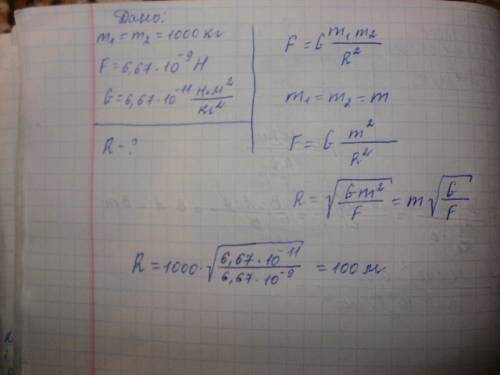 Дано:
m₁ = m₂ = 1000 кг
F = 6,67 · 10⁻⁹ Н
G = 6,67 · 10⁻¹¹ Н·м²/кг²
R - ?
F = G m₁ m₂ / R²
m₁ = m₂ = m
F = G m² / R²
R = √(Gm²/F) = m √(G/F)
R = 1000 · √(6,67 · 10⁻¹¹ / 6,67 · 10⁻⁹) = 100 м